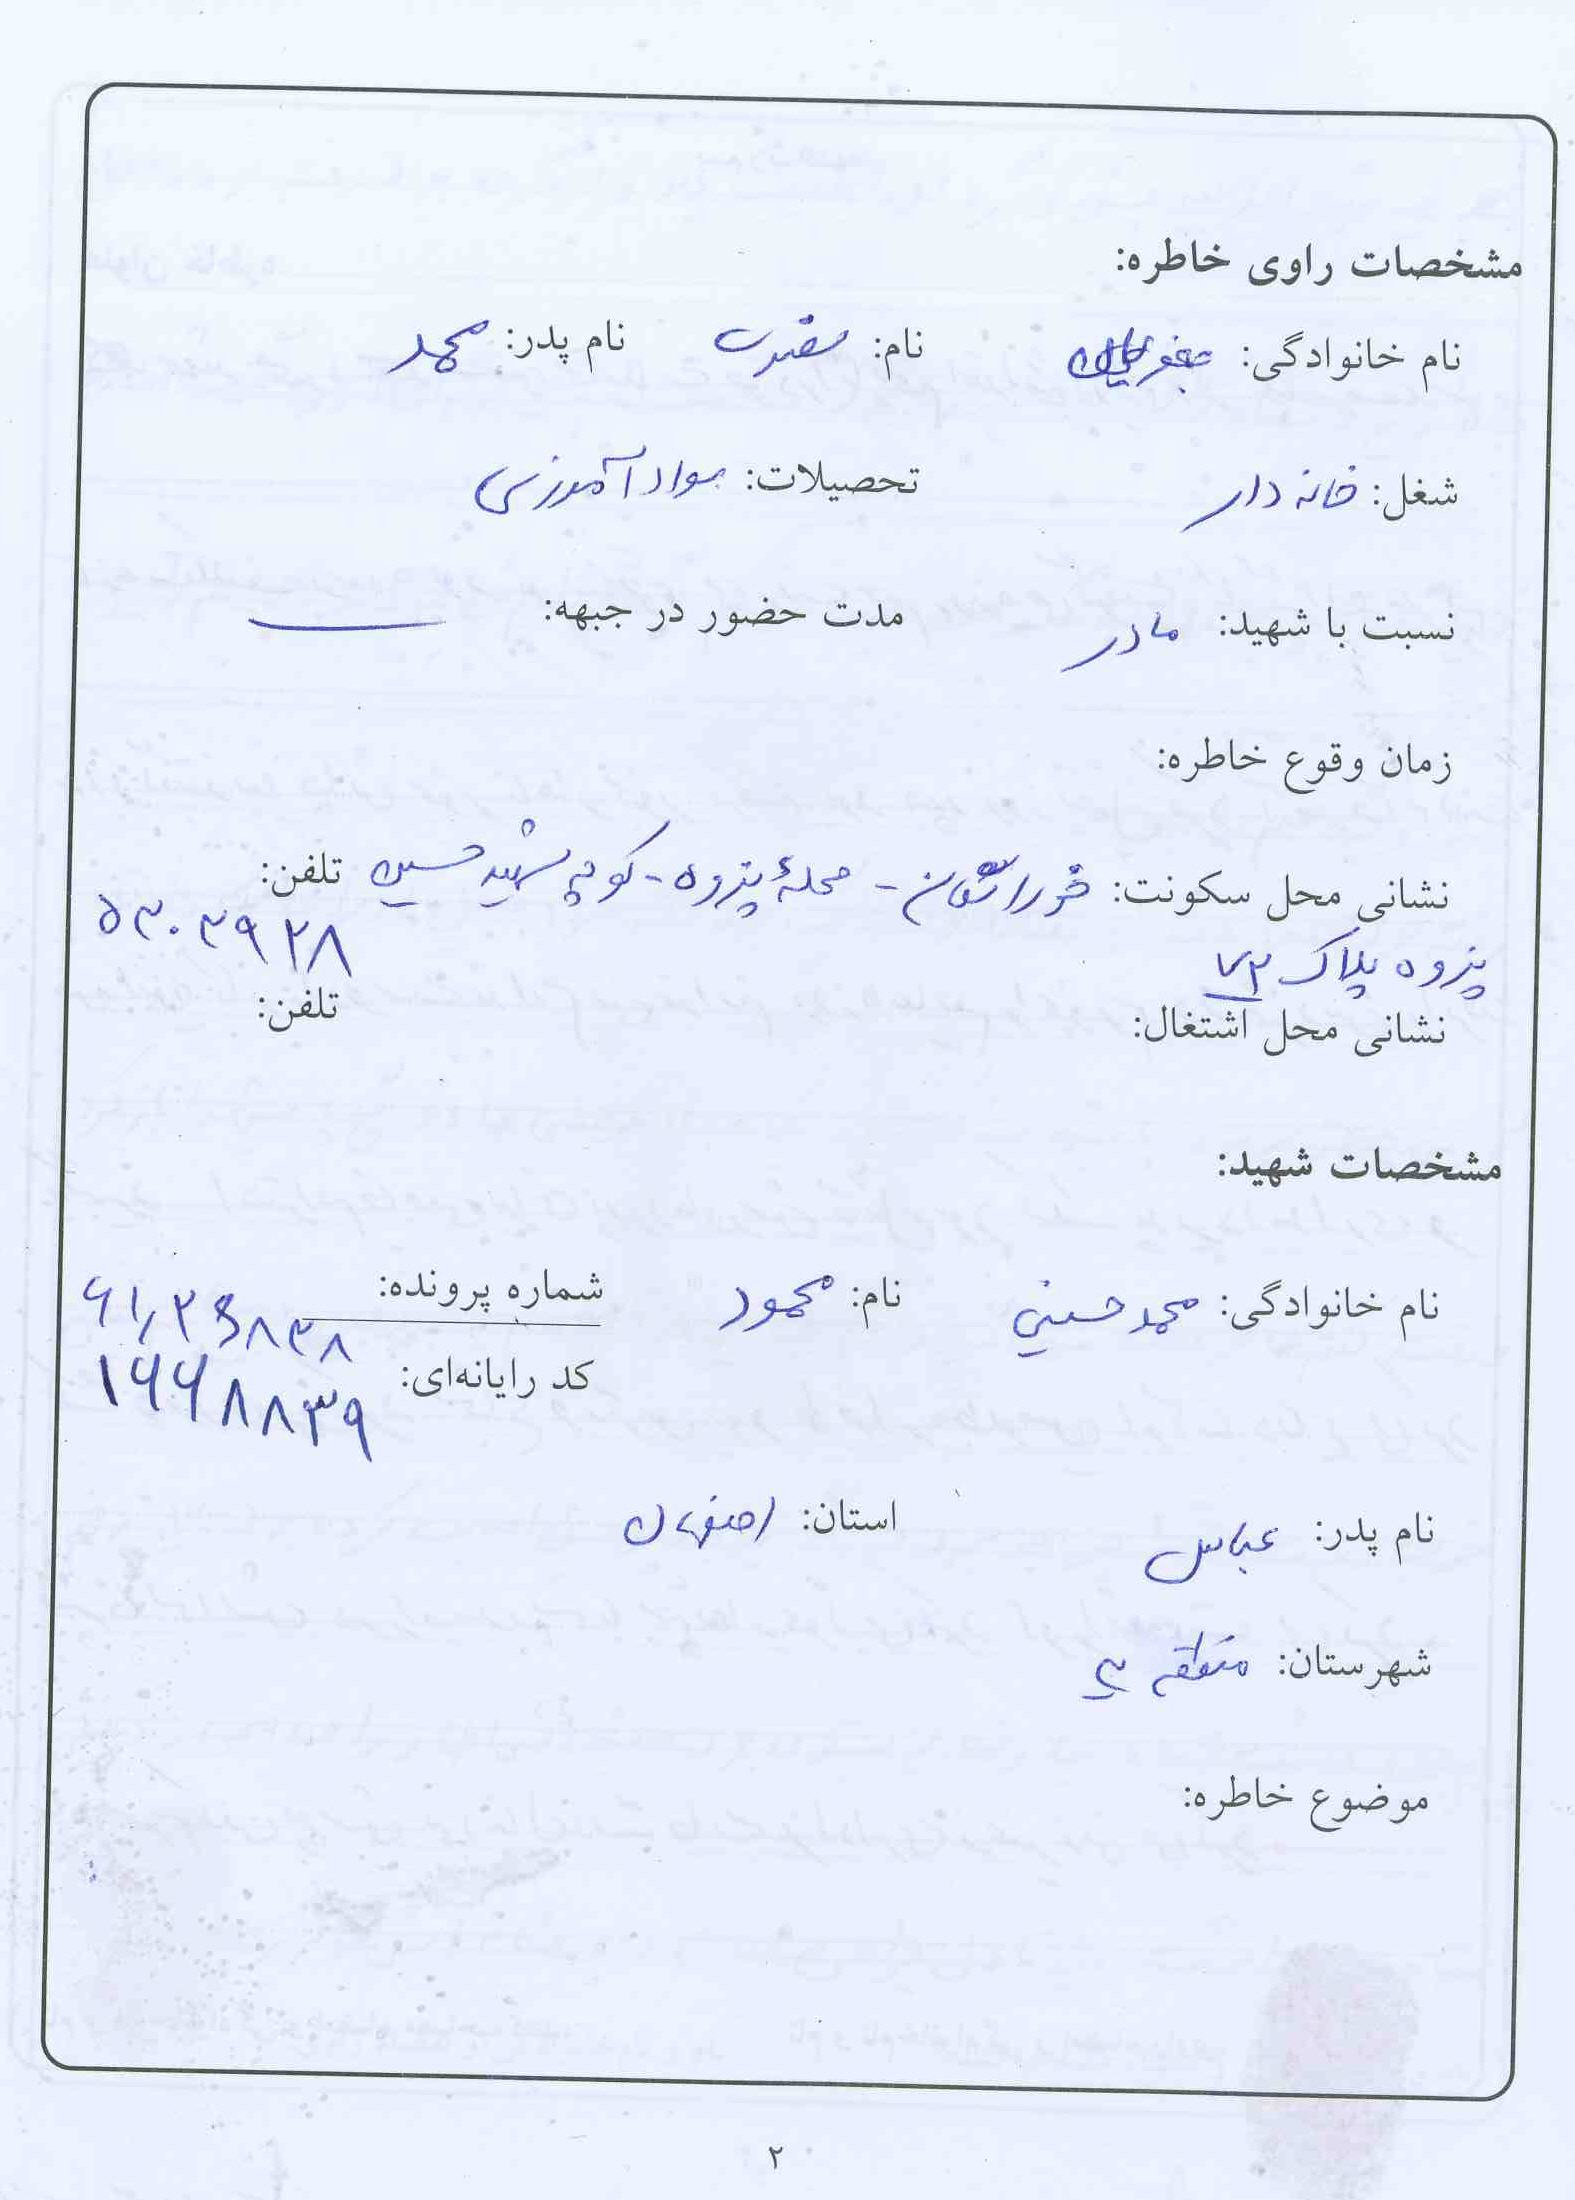 مشخصات راوی خاطره:
نام خانوادگی: جعفریان نام: نام پدر: محمد
شغل: خانه دار تحصیلات: سواد آموزی
نسبت با شهید: مادر مدت حضور در جبهه: ــــ
زمان وقوع خاطره:
نشانی محل سکونت: خوراسگان - محلهٔ پزوه - کوچه شهید حسین تلفن: ۵۳۰۳۹۲۸
پزوه پلاک ۷۲
نشانی محل اشتغال: تلفن:
مشخصات شهید:
نام خانوادگی: محمدحسینی نام: محمود شماره پرونده:
کد رایانه‌ای: ۱۶۶۸۸۳۹
نام پدر: عباس استان: اصفهان
شهرستان: منطقه ۳
موضوع خاطره:
۲